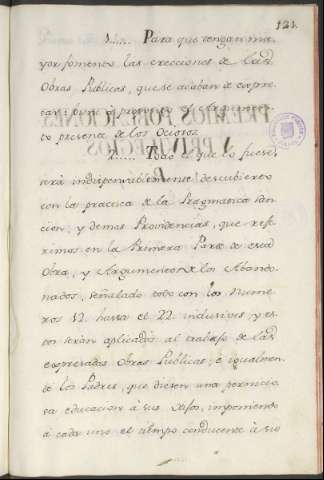 121.
1..... Para que tengan ma-
yor fomento las erecciones de las
Obras Publicas, que se acaban de expre-
sar: pone á proposito el Argumen-
to presente de los Ociosos.
2..... Todo el que lo fuese,
será indispensablemente descubierto
con la practica de la Pragmatica San-
cion, y demas Providencias, que refe-
rimos en la Primera Parte de esta
Obra, y Argumentos de los Abando-
nados, señalado todo con los Nume-
ros 12 hasta el 22 inclusives, y es-
tos serán aplicados al trabajo de las
expresadas Obras Publicas, é igualmen-
te los Padres, que diesen una pernicio-
sa educacion á sus hijos, imponiendo
á cada uno el tiempo conducente á su